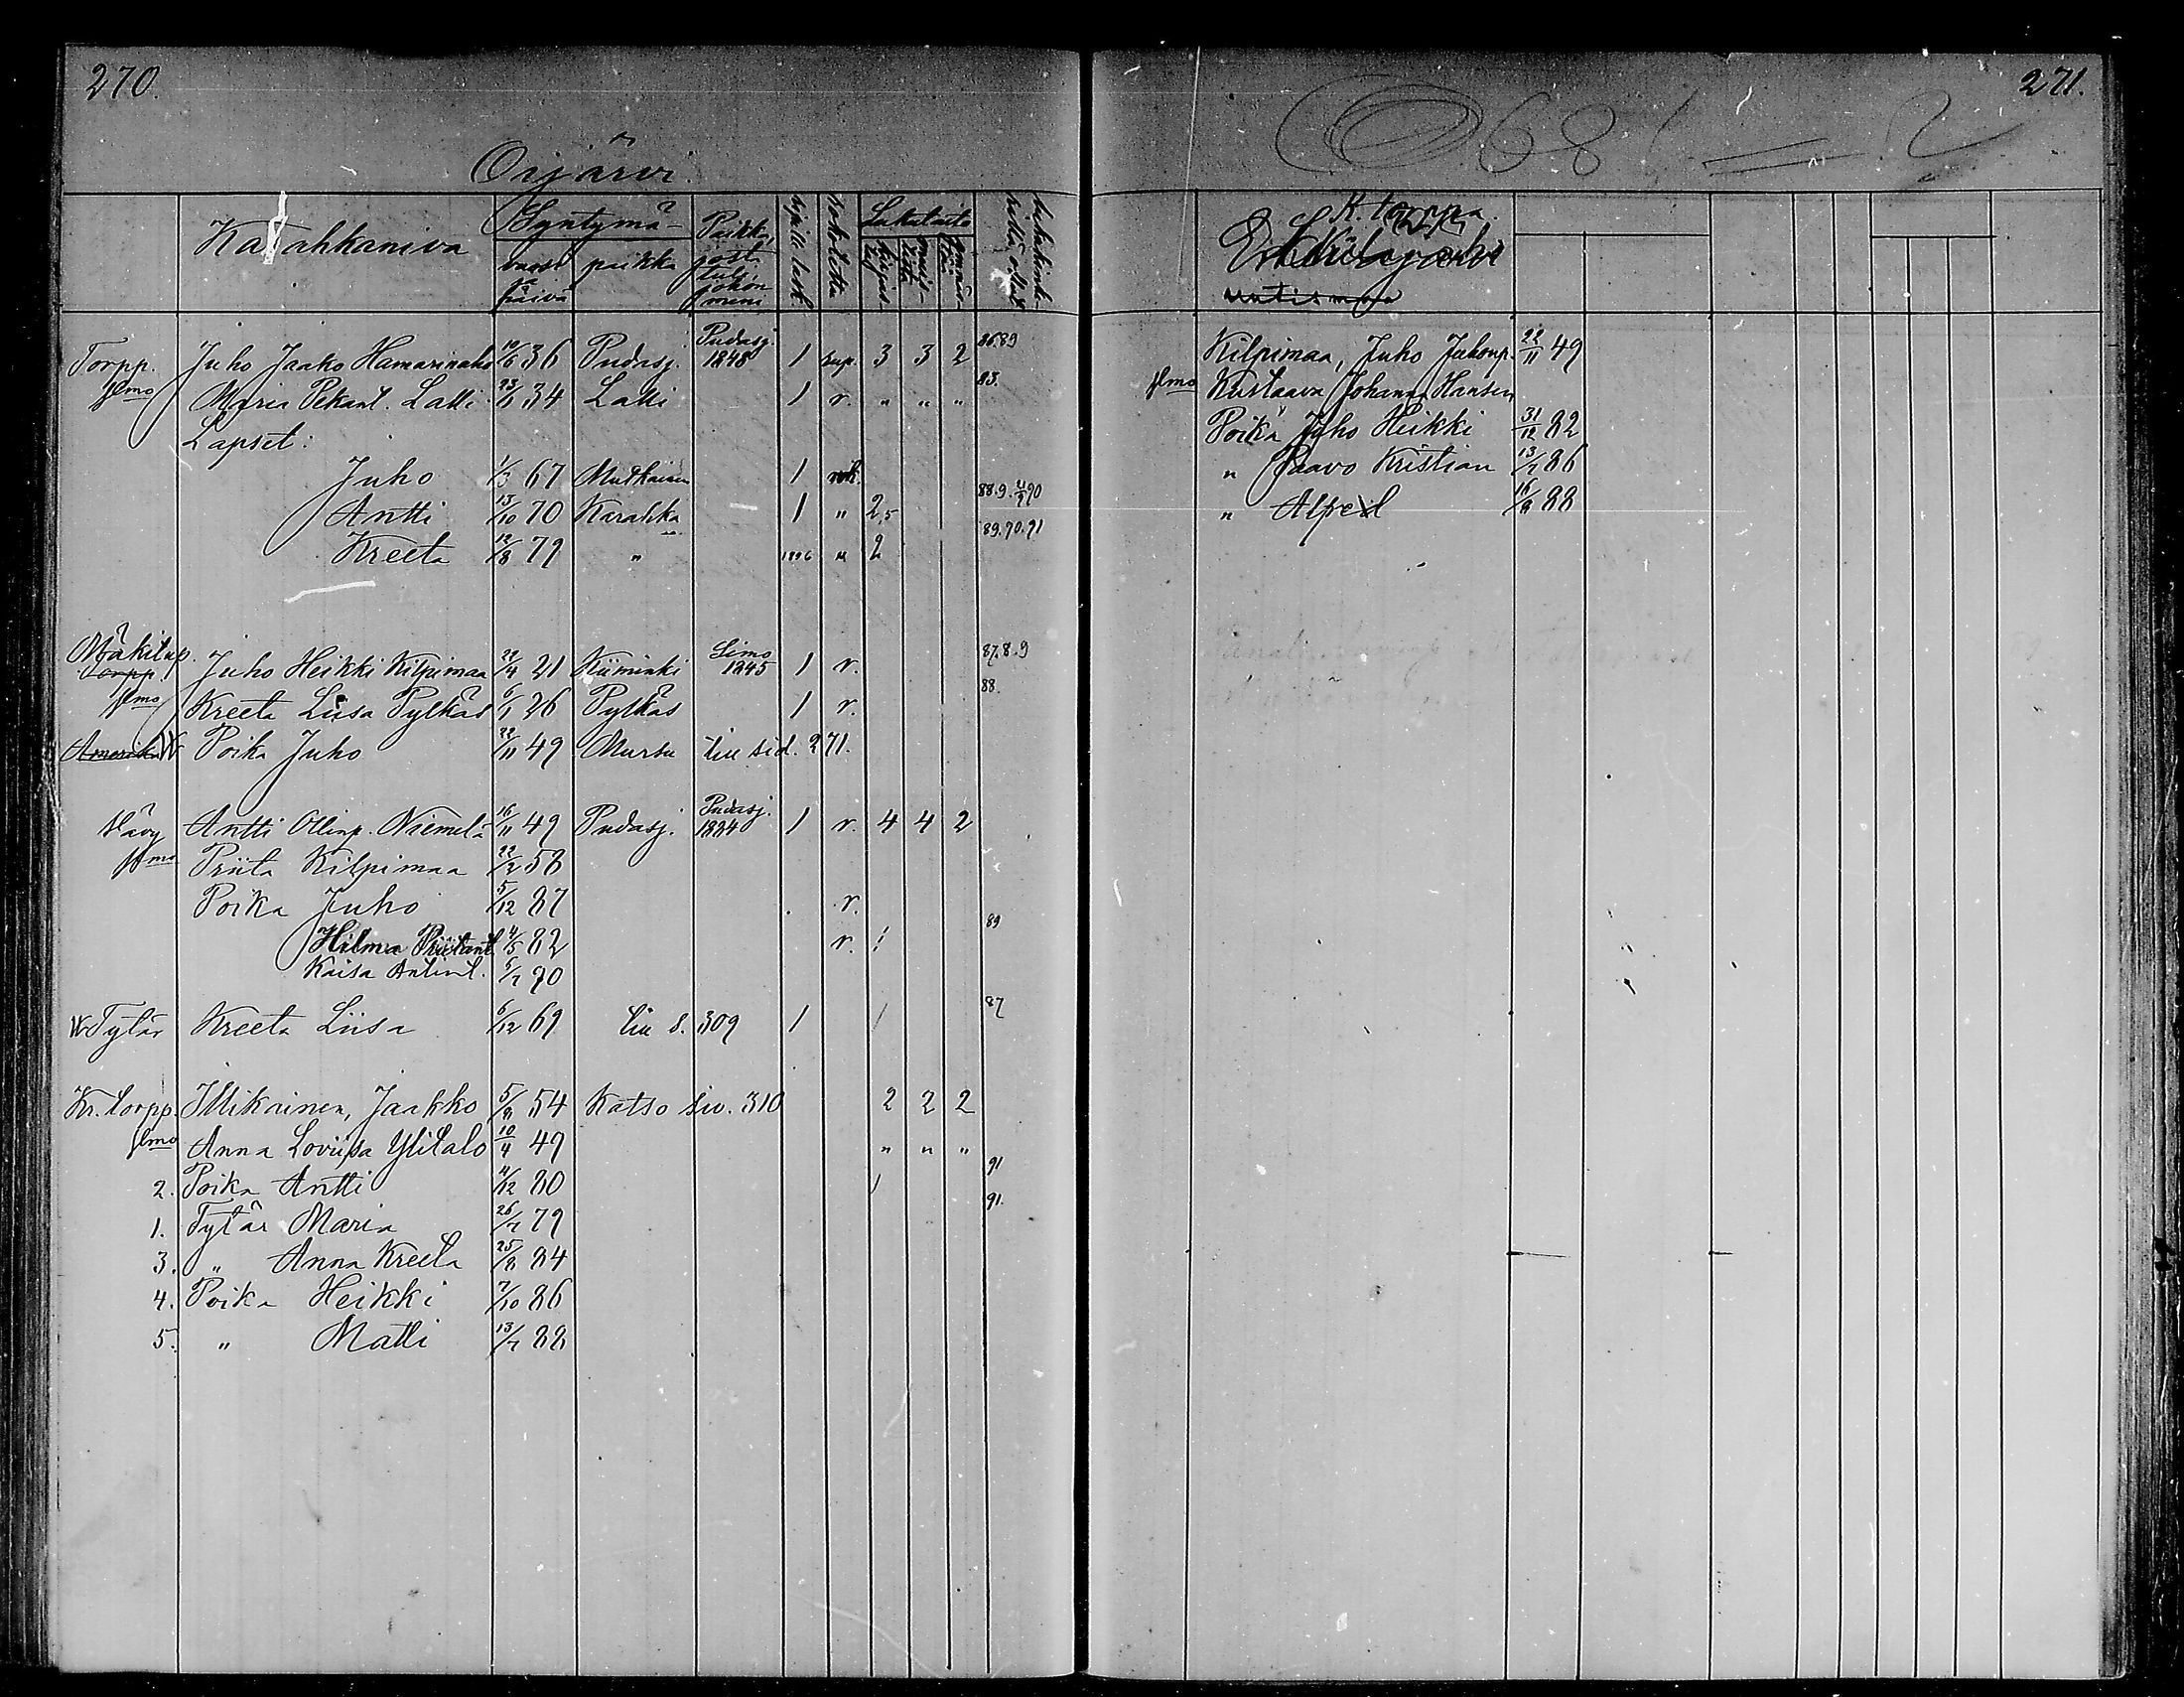 270.
Oijärvi.
Karahkaniva
Syntymä-
vuosi
päivä
paikka
Paikka,
josta
tuli
johon
meni
Lukutaito
Torpp. Juho Jaako Hamarinaho 10/6 36 Pudasj. Pudasj. 1848 1 rup. 3 3 2 86.89
Wmo Maria Pekant. Latti 23/1 34 Latti 1 r. " " " 83.
Lapset:
Juho 1/3 67 Mutkainen 1 rok.
Antti 13/10 70 Karahka 1 " 2,5 88.9.
Kreeta 12/8 79 " 1896 " 2 89.90.91
Mäkitup.
Torpp. Juho Heikki Kilpimaa 29/4 21 Kiiminki Simo 1845 1 r. 87.8.9
Wmo Kreeta Liisa Pylkäs 6/1 26 Pylkäs 1 r. 88.
Amerika Poika Juho 22/11 49 Mursu liu sid. 271.
Vävy Antti Ollinp. Niemelä 16/11 49 Pudasj. Pudasj. 1884 1 r. 4 4 2
Wmo Priita Kilpimaa 22/2 58
Poika Juho 5/12 87 r.
Hilma Priitant. 4/5 82 r. 1 89
Kaisa Antint. 6/7 90
Tytär Kreeta Liisa 6/12 69 liu s. 309 1 / 87
Kr. torpp. Illikainen, Jaakko 5/8 54 Katso siv. 310 2 2 2
Wmo Anna Loviisa Ylitalo 10/4 49 " " "
2. Poika Antti 4/12 80 / 91
1. Tytär Maria 26/7 79 91.
3. " Anna Kreeta 25/8 84
4. Poika Heikki 7/10 86
5. " Matti 13/7 88
271.
68
K. torppa.
uutismaa
Kilpimaa, Juho Juhonp. 22/11 49
Wmo Kustaava Johanna Hansen
Poika Juho Heikki 31/12 82
" Paavo Kristian 13/7 86
" Alfred 16/8 88